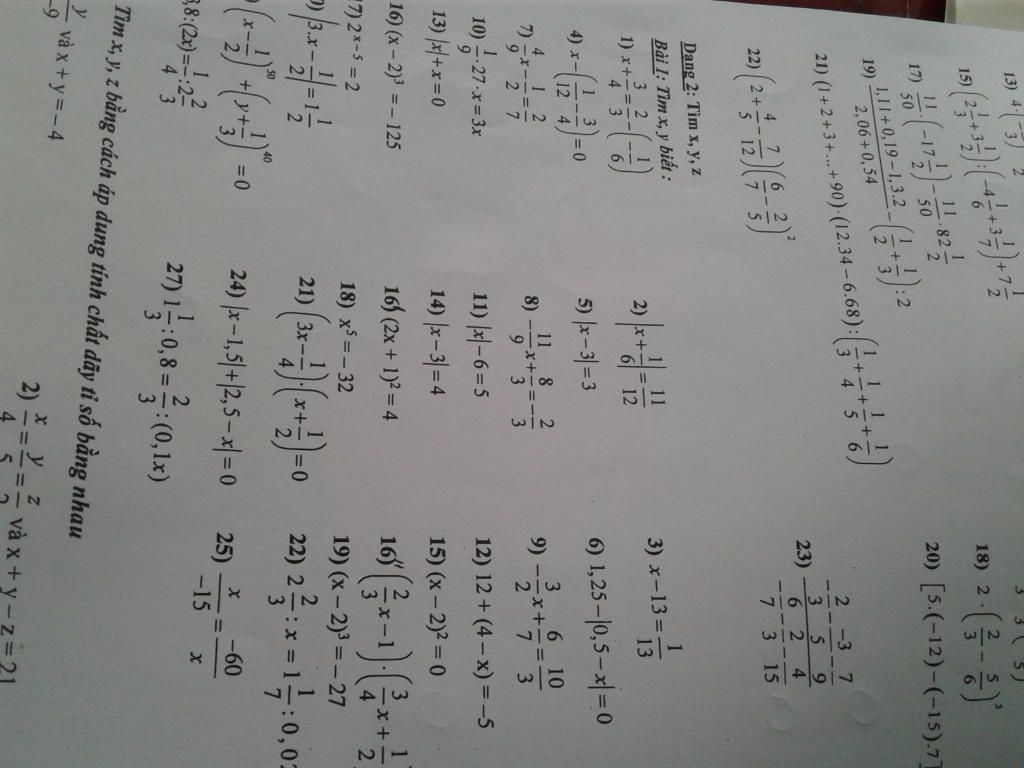 18) 2·(2/3 − 5/6)³
15) (2 1/3 + 3 1/2) : (−4 1/6 + 3 1/7) + 7 1/2
17) 11/50·(−17 1/2) − 11/50·82 1/2
20) [5.(−12) − (−15).7]
19) (1,11 + 0,19 − 1,3.2)/(2,06 + 0,54) − (1/2 + 1/3) : 2
21) (1 + 2 + 3 + ... + 90)·(12.34 − 6.68) : (1/3 + 1/4 + 1/5 + 1/6)
22) (2 + 4/5 − 7/12)(6/7 − 2/5)²
23)
Dạng 2: Tìm x, y, z
Bài 1: Tìm x, y biết :
1) x + 3/4 = 2/3 − (−1/6) 2) |x + 1/6| = 11/12 3) x − 13 = 1/13
4) x − (1/12 − 3/4) = 0 5) |x − 3| = 3 6) 1,25 − |0,5 − x| = 0
7) 4/9 x − 1/2 = 2/7 8) −11/9 x + 8/3 = −2/3 9) −3/2 x + 6/7 = 10/3
10) 1/9·27·x = 3x 11) |x| − 6 = 5 12) 12 + (4 − x) = −5
13) |x| + x = 0 14) |x − 3| = 4 15) (x − 2)² = 0
16) (x − 2)³ = −125 16') (2x + 1)² = 4 16'') (2/3 x − 1)·(3/4 x + 1/2)
17) 2ˣ⁻⁵ = 2 18) x⁵ = −32 19) (x − 2)³ = −27
|3.x − 1/2| = 1 1/2 21) (3x − 1/4)·(x + 1/2) = 0 22) 2 2/3 : x = 1 1/7 : 0,02
(x − 1/2)⁵⁰ + (y + 1/3)⁴⁰ = 0 24) |x − 1,5| + |2,5 − x| = 0 25) x/−15 = −60/x
3,8 : (2x) = 1/4 : 2 2/3 27) 1 1/3 : 0,8 = 2/3 : (0,1x)
Tìm x, y, z bằng cách áp dung tính chất dãy tỉ số bằng nhau
y/−9 và x + y = −4 2) x/4 = y/5 = z/2 và x + y − z = 21